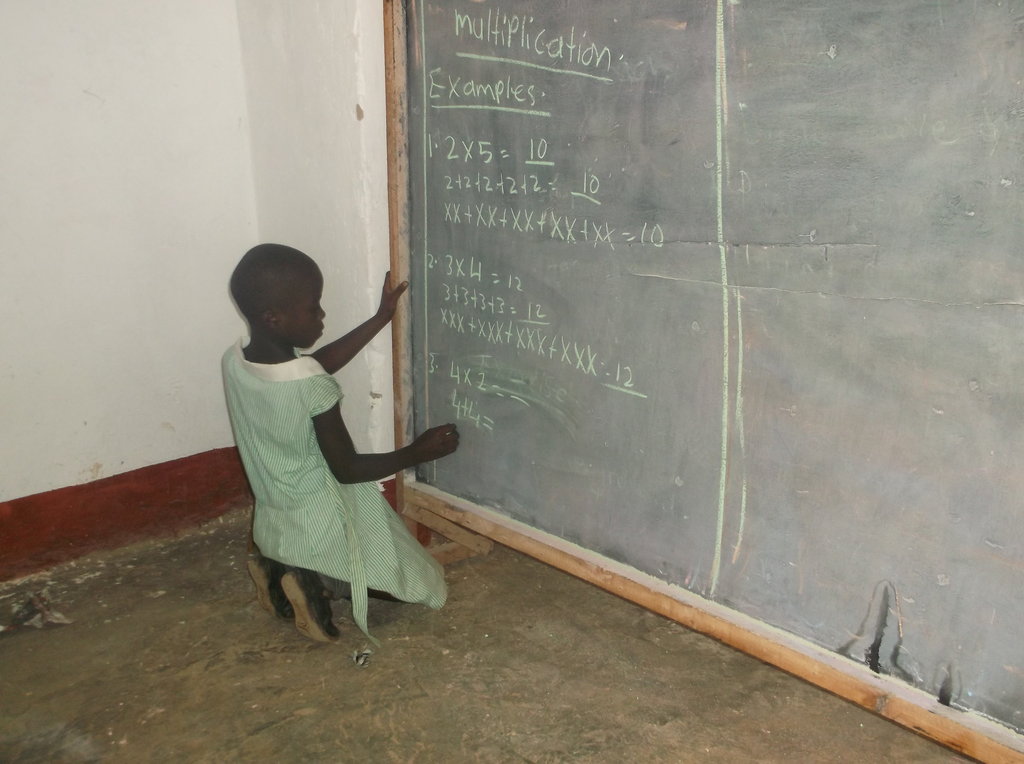 Multiplication.
Examples.
1. 2×5 = 10
2+2+2+2+2 = 10
XX+XX+XX+XX+XX = 10
2. 3×4 = 12
3+3+3+3 = 12
XXX+XXX+XXX+XXX = 12
3. 4×2 =
4+4=